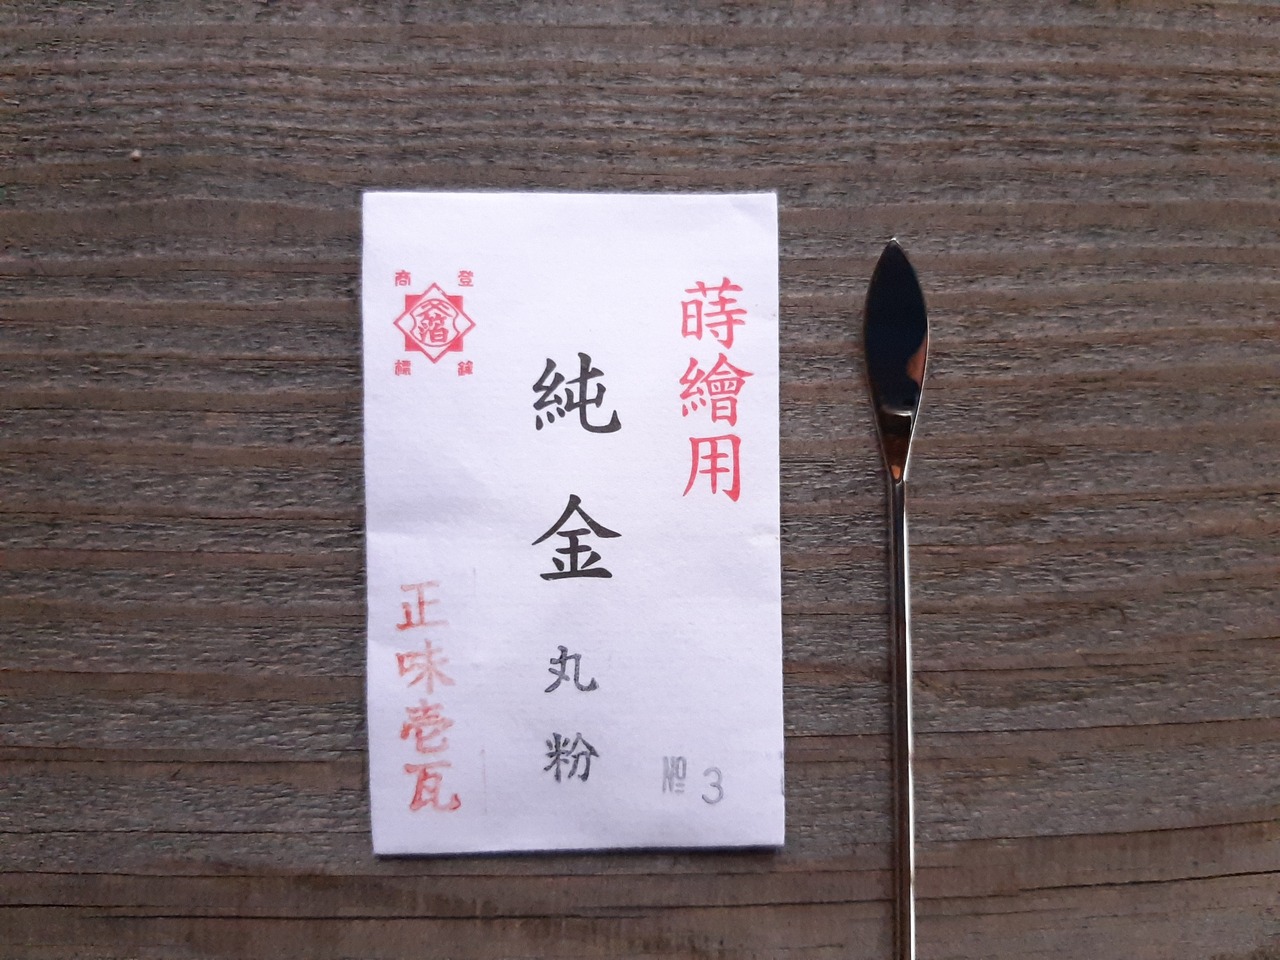 蒔繪用
純金
丸粉
№ 3
登録
商標
正味壱瓦